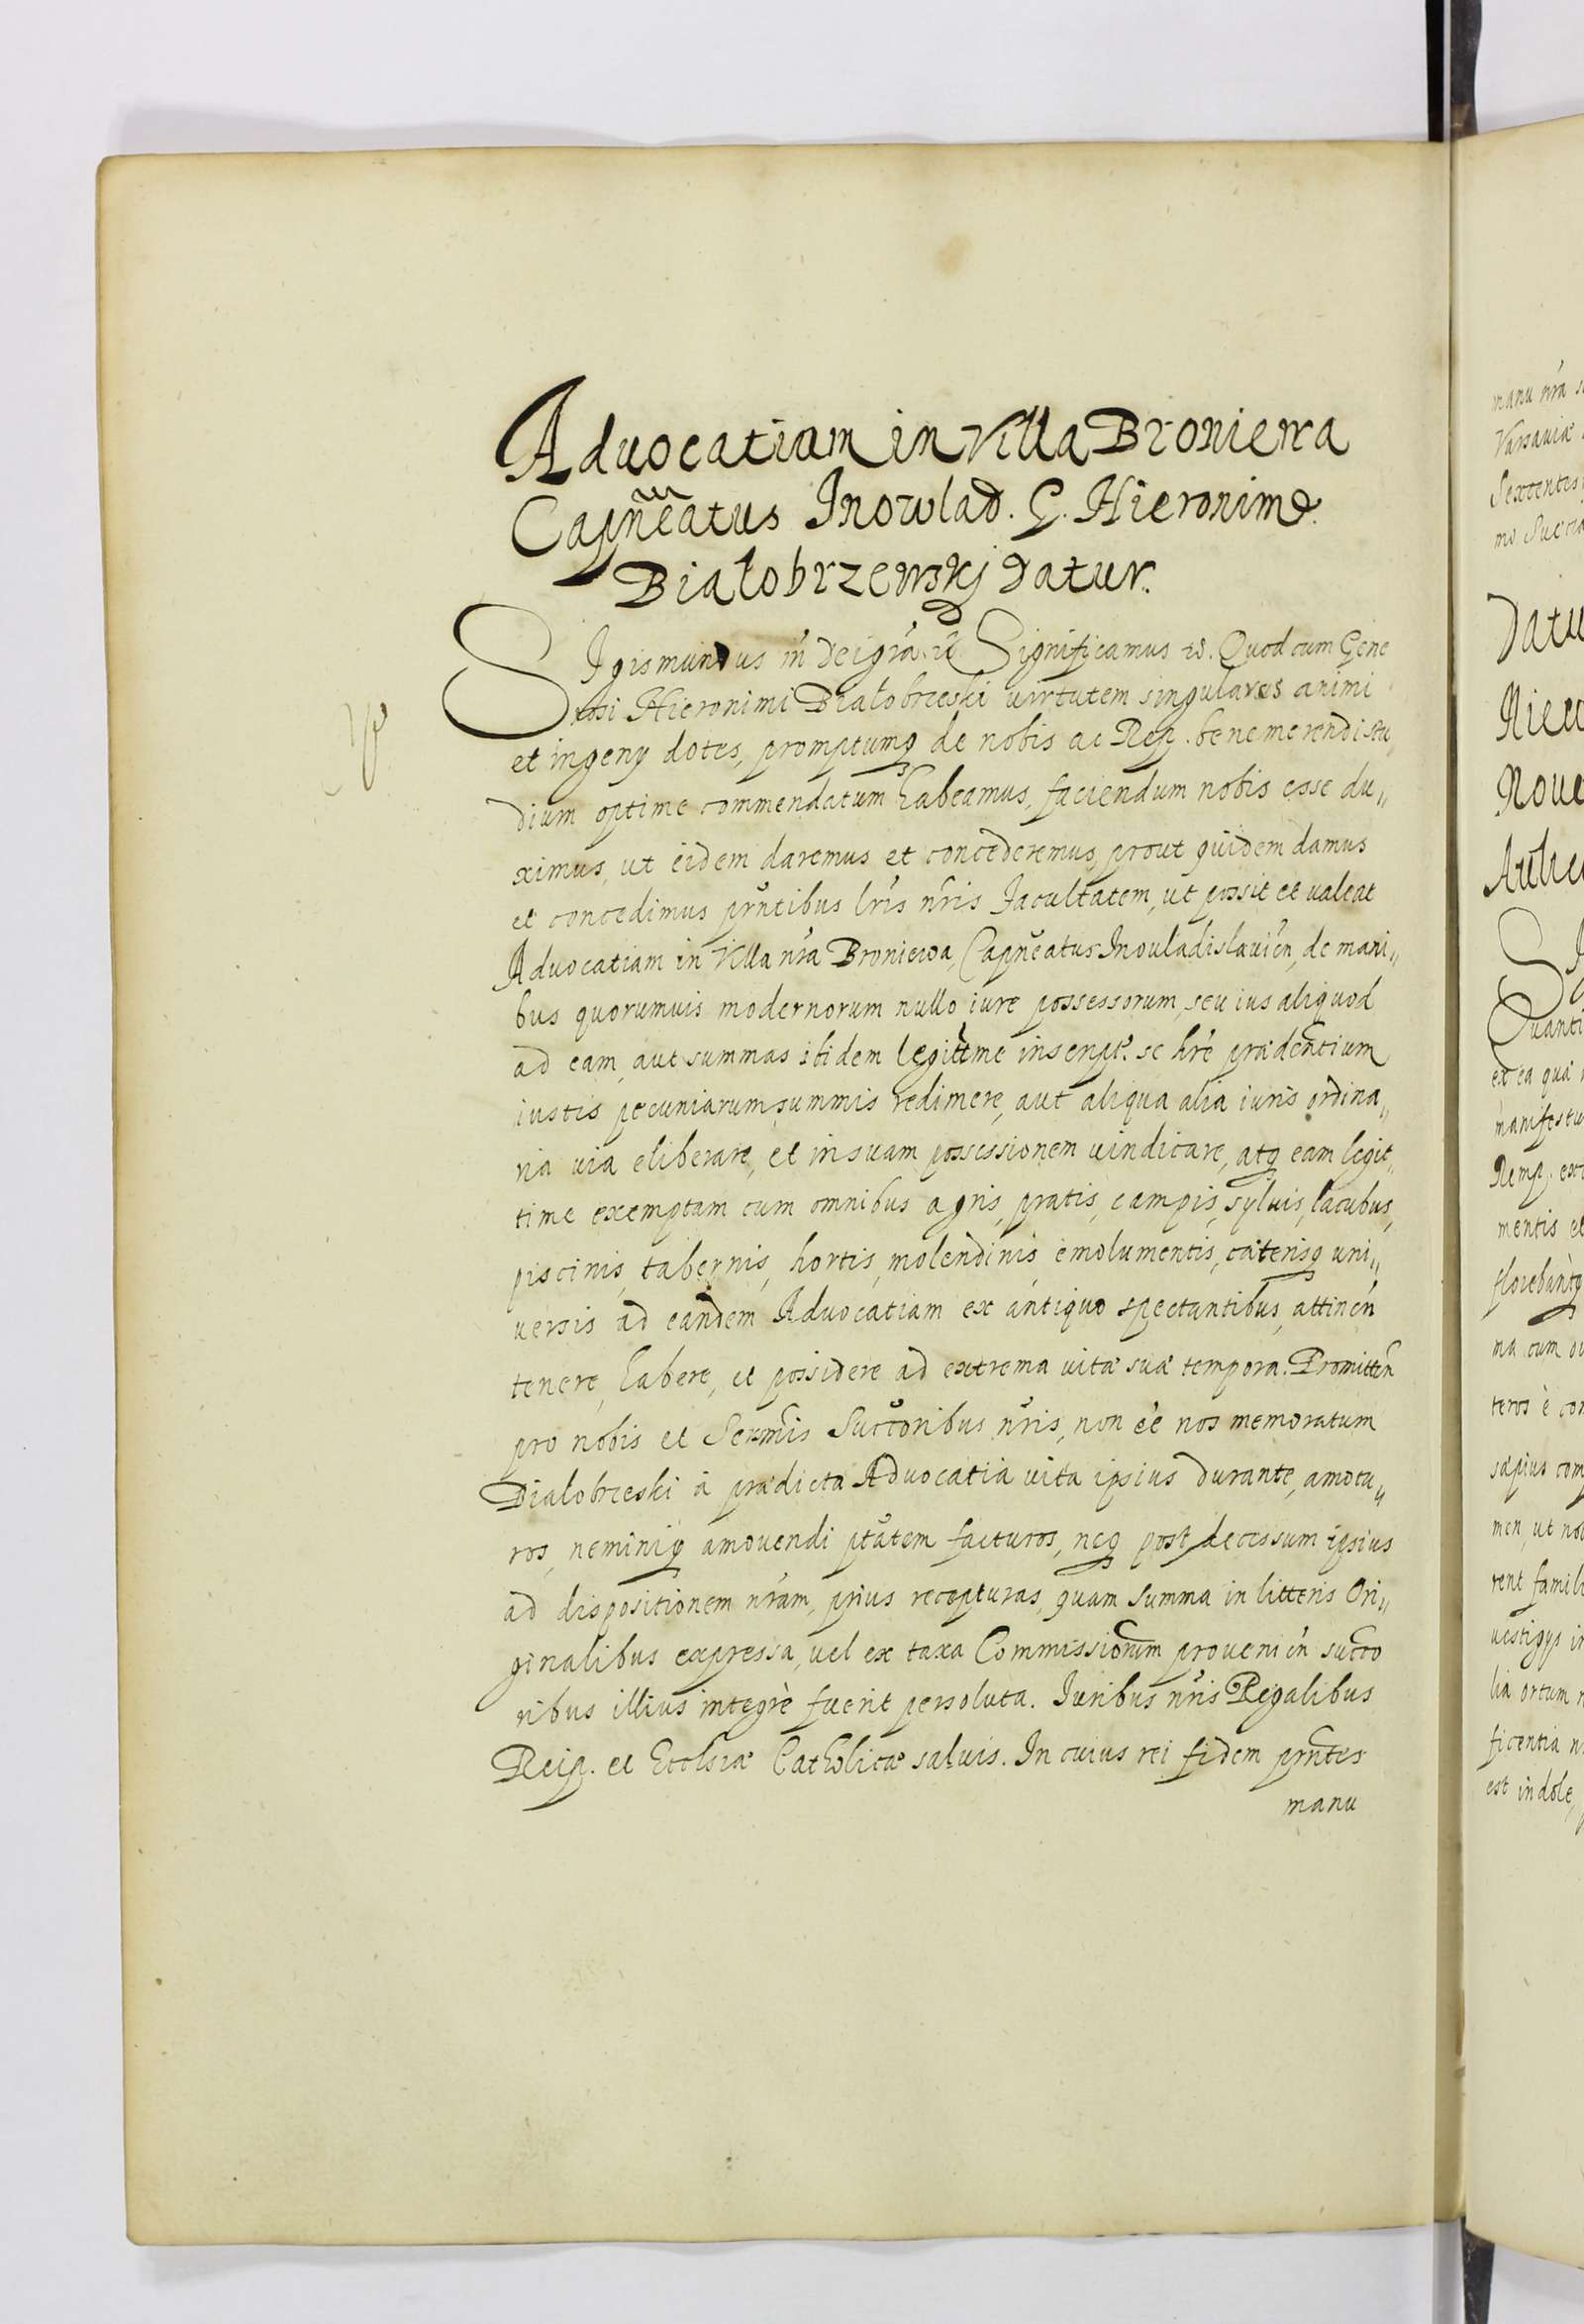 Aduocatiam in Villa Broniewa
Capñeatus Inowlad. G. Hieronimo
Białobrzewskj datur.
SIgismundus iń Dei grá. Significamus. Quod cum Gene
rosi Hieronimi Białobrzeski uirtutem singulares animi
et ingeny dotes, promptumq de nobis ac Rep. benemerendi stu„
dium optime commendatum habeamus, faciendum nobis esse du„
ximus, ut eidem daremus et concederemus, prout quidem damus
et concedimus prñtibus lrís nrís facultatem, ut possit et ualeat
Aduocatiam in Villa nrá Broniewa, Capñeatus Inouladislauień, de mani„
bus quorumuis modernorum nullo iure possessorum, seu ius aliquod
ad eam, aut summas ibidem legittime inscript. se hrê prædentium
iustis pecuniarum summis redimere, aut aliqua alia iuris ordina„
ria uia eliberare, et in suam possessionem uindicare, atq eam legit„
time exemptam cum omnibus agris, pratis, campis, syluis, lacubus,
piscinis, tabernis, hortis, molendinis, emolumentis, cæterisq uni„
uersis ad eandem Aduocatiam ex antiquo spectantibus, attineń
tenere, habere, et possidere ad extrema uitæ suæ tempora. Promitteń
pro nobis et Sermis Succoribus nrís, non eê nos memoratum
Białobrzeski à prædicta Aduocatia uita ipsius durante, amotu„
ros, neminiq amouendi ptátem facturos, neq post decessum ipsius
ad dispositionem nrám, prius recepturas, quam summa in litteris Ori„
ginalibus expressa, uel ex taxa Commissiorum prouenień succo
ribus illius integrè fuerit persoluta. Iuribus nrís Regalibus
Reip. et Ecclsiæ Catholicæ saluis. In cuius rei fidem prñtes
manu
manu nrá
Varsauiæ
Datu
Noue
Quanti
ex ea quæ
manifestu
Remp.
mentis et
ma cum
teros è con
sæpius com
men, ut
rent famili
uestigys in
lia ortum
ficentia
est indole,